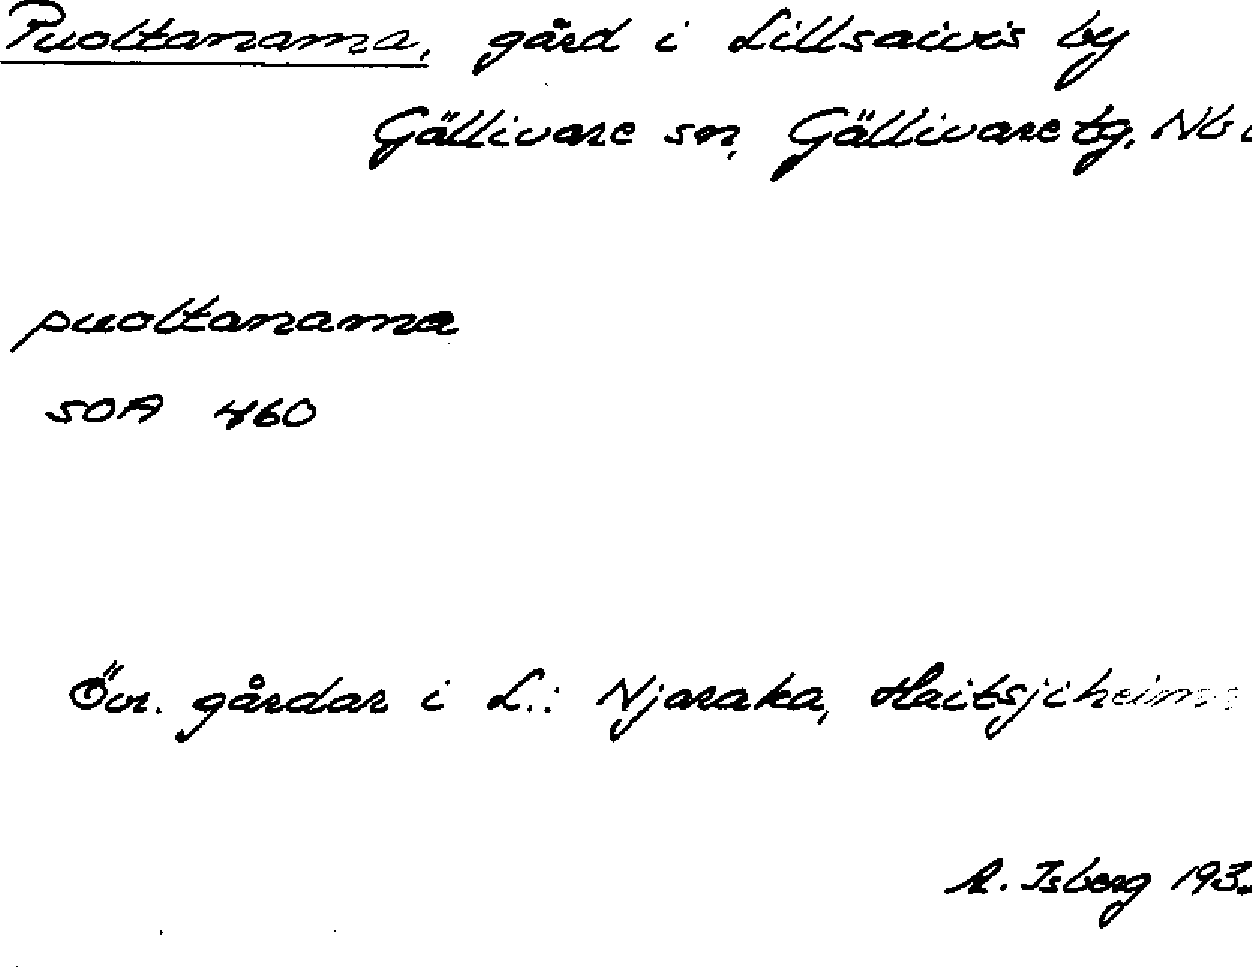 Puoltanama, gård i Lillsaivis by
Gällivare sn, Gällivare tg, Nb
puoltanama
SOA 460
Övr. gårdar i L.: Njaraka,
A. Isberg